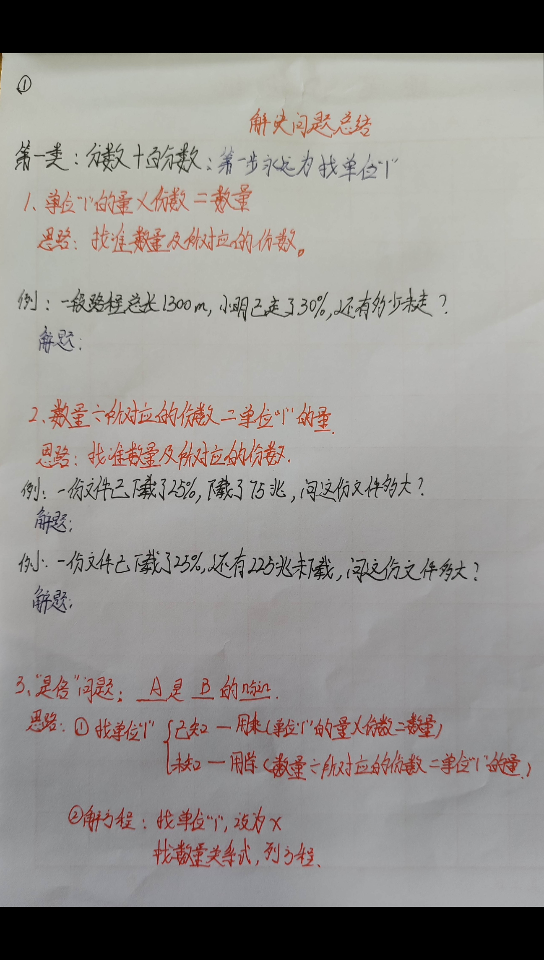 ①
解决问题总结
第一类：分数+百分数：第一步永远为找单位"1"
1、单位"1"的量×份数=数量
思路：找准数量及所对应的份数。
例：一段路程总长1300m，小明已走了30%，还有多少未走？
解题：
2、数量÷所对应的份数=单位"1"的量.
思路：找准数量及所对应的份数.
例：一份文件已下载了25%，下载了75兆，问这份文件多大？
解题：
例：一份文件已下载了25%，还有225兆未下载，问这份文件多大？
解题：
3、"是合"问题： A 是 B 的
思路：①找单位"1" 已知—用乘（单位"1"的量×份数=数量）
未知—用除（数量÷所对应的份数=单位"1"的量）
②解方程：找单位"1"，设为x
找数量关系式，列方程.